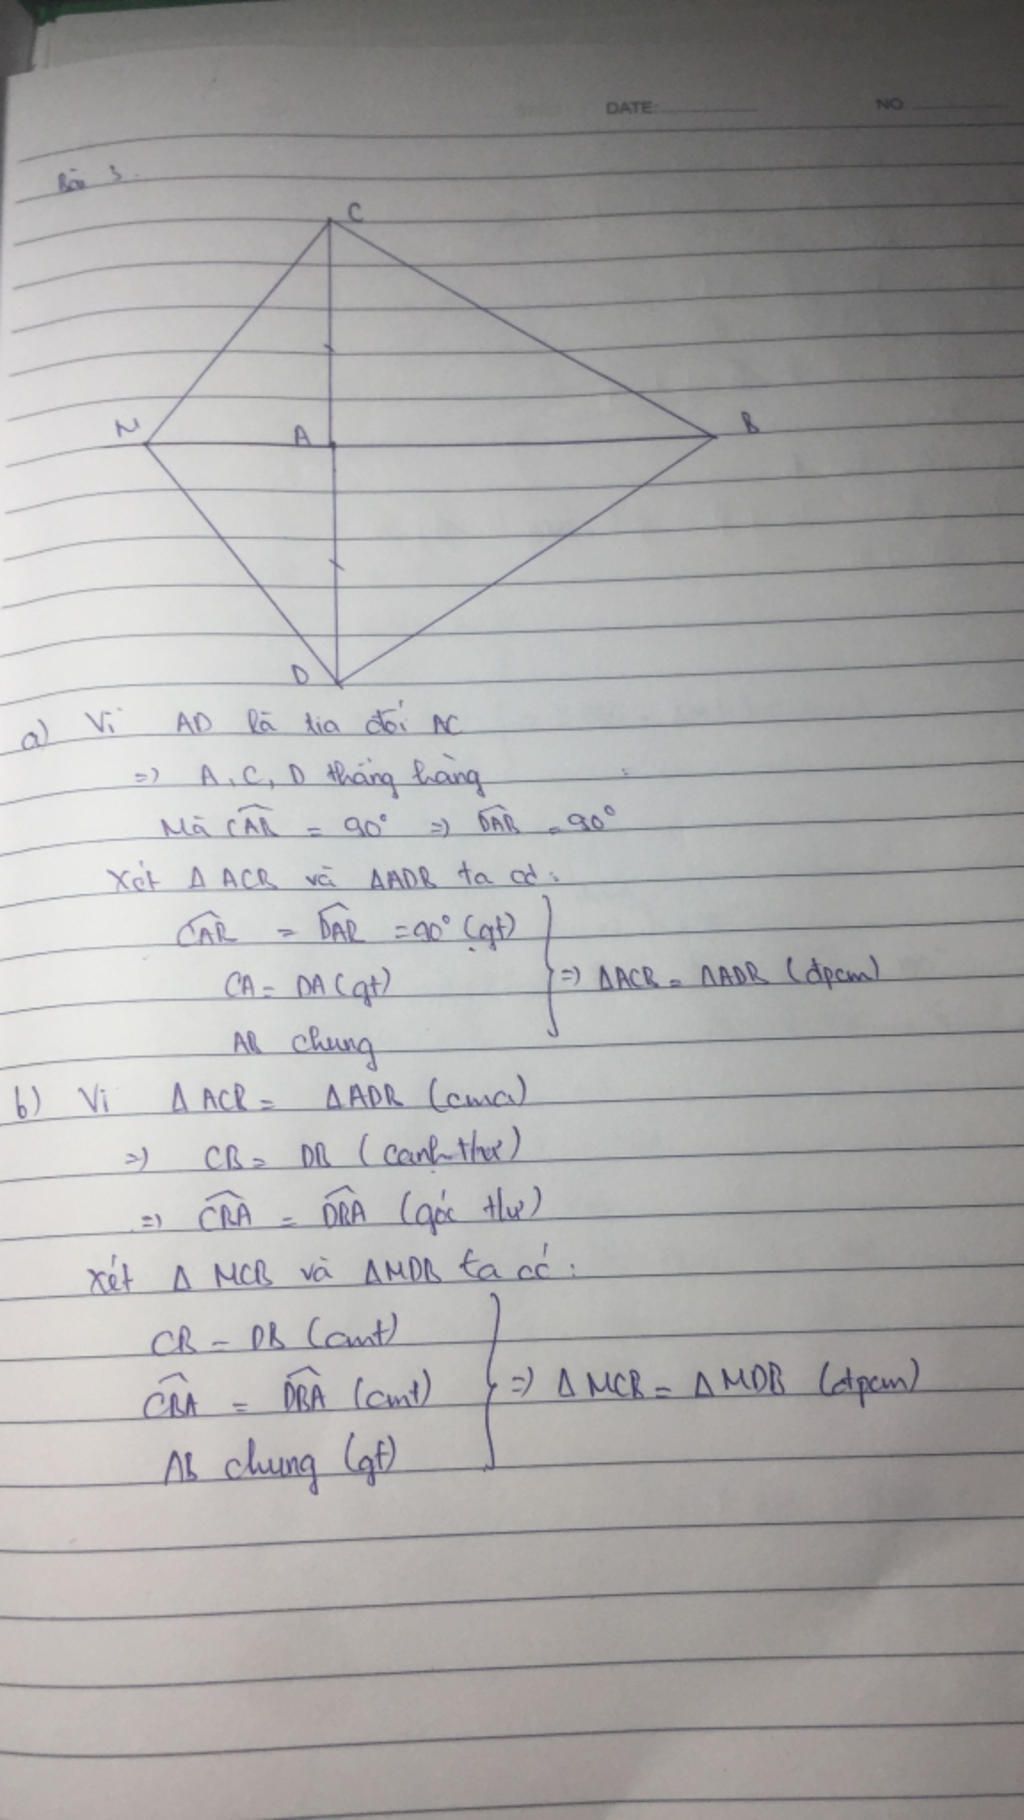 DATE:
NO
Bài 3.
C
M
A
B
D
a) Vì AD là tia đối AC
=> A, C, D thẳng hàng
Mà CAB = 90° => DAB = 90°
Xét Δ ACB và ΔADB ta có:
CAB = DAB = 90° (gt)
CA = DA (gt)
=> ΔACB = ΔADB (đpcm)
AB chung
b) Vì Δ ACB = ΔADB (cma)
=> CB = DB (cạnh tư)
=> CBA = DBA (góc tư)
Xét Δ MCB và ΔMDB ta có:
CB = DB (cmt)
CBA = DBA (cmt)
=> Δ MCB = Δ MDB (đpcm)
AB chung (gt)